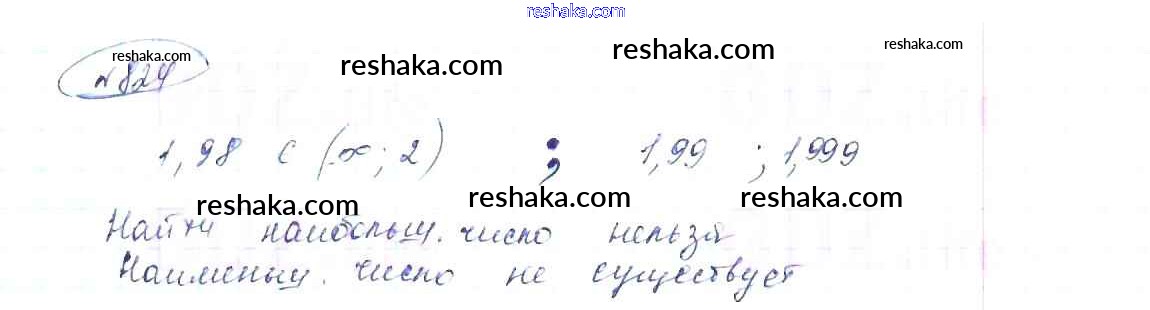 reshaka.com
№824 reshaka.com reshaka.com reshaka.com reshaka.com
1,98 ∈ (-∞; 2) ; 1,99 ; 1,999
reshaka.com reshaka.com reshaka.com
Найти наибольш. число нельзя
Наименьш. число не существует